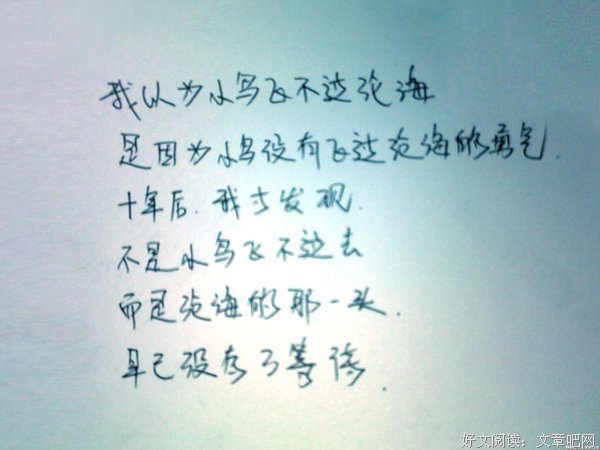 我以为小鸟飞不过沧海
是因为小鸟没有飞过沧海的勇气.
十年后.我才发现.
不是小鸟飞不过去
而是沧海的那一头.
早已没有了等待.
好文阅读：文章吧网